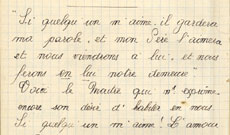 "Si quelqu'un m'aime, il gardera
ma parole, et mon Père l'aimera
et nous viendrons à lui, et nous
ferons en lui notre demeure"
Voici le Maître qui n' exprime
encore son désir d' habiter en nous.
Si quelqu'un m'aime! L'amour